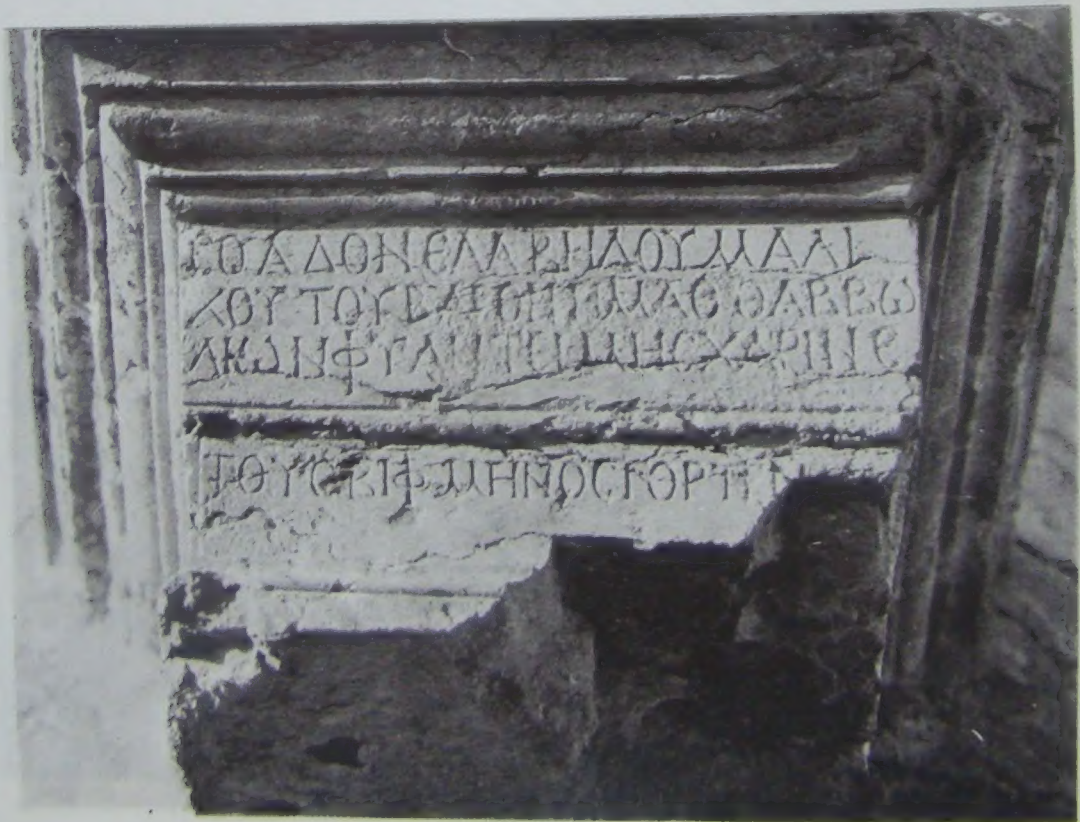 ϹΟΑΔΟΝ ΕΛΑΒΗΛΟΥ ΜΑΛΙ
ΧΟΥ ΤΟΥ ΜΑΘΘΑΒΒⲰ
ΛΙⲰΝ ΦΥΛΗ ΤΕΙΜΗϹ ΧΑΡΙΝ Ε
ΤΟΥϹ ΒΙΦ ΜΗΝΟϹ ΓΟΡΠΙ